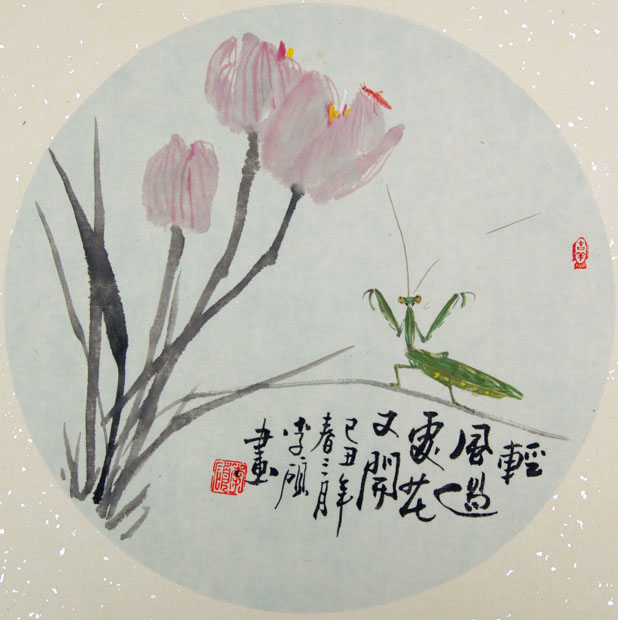 輕
風過
處花
又開
己丑年
春三月
李碩
畫